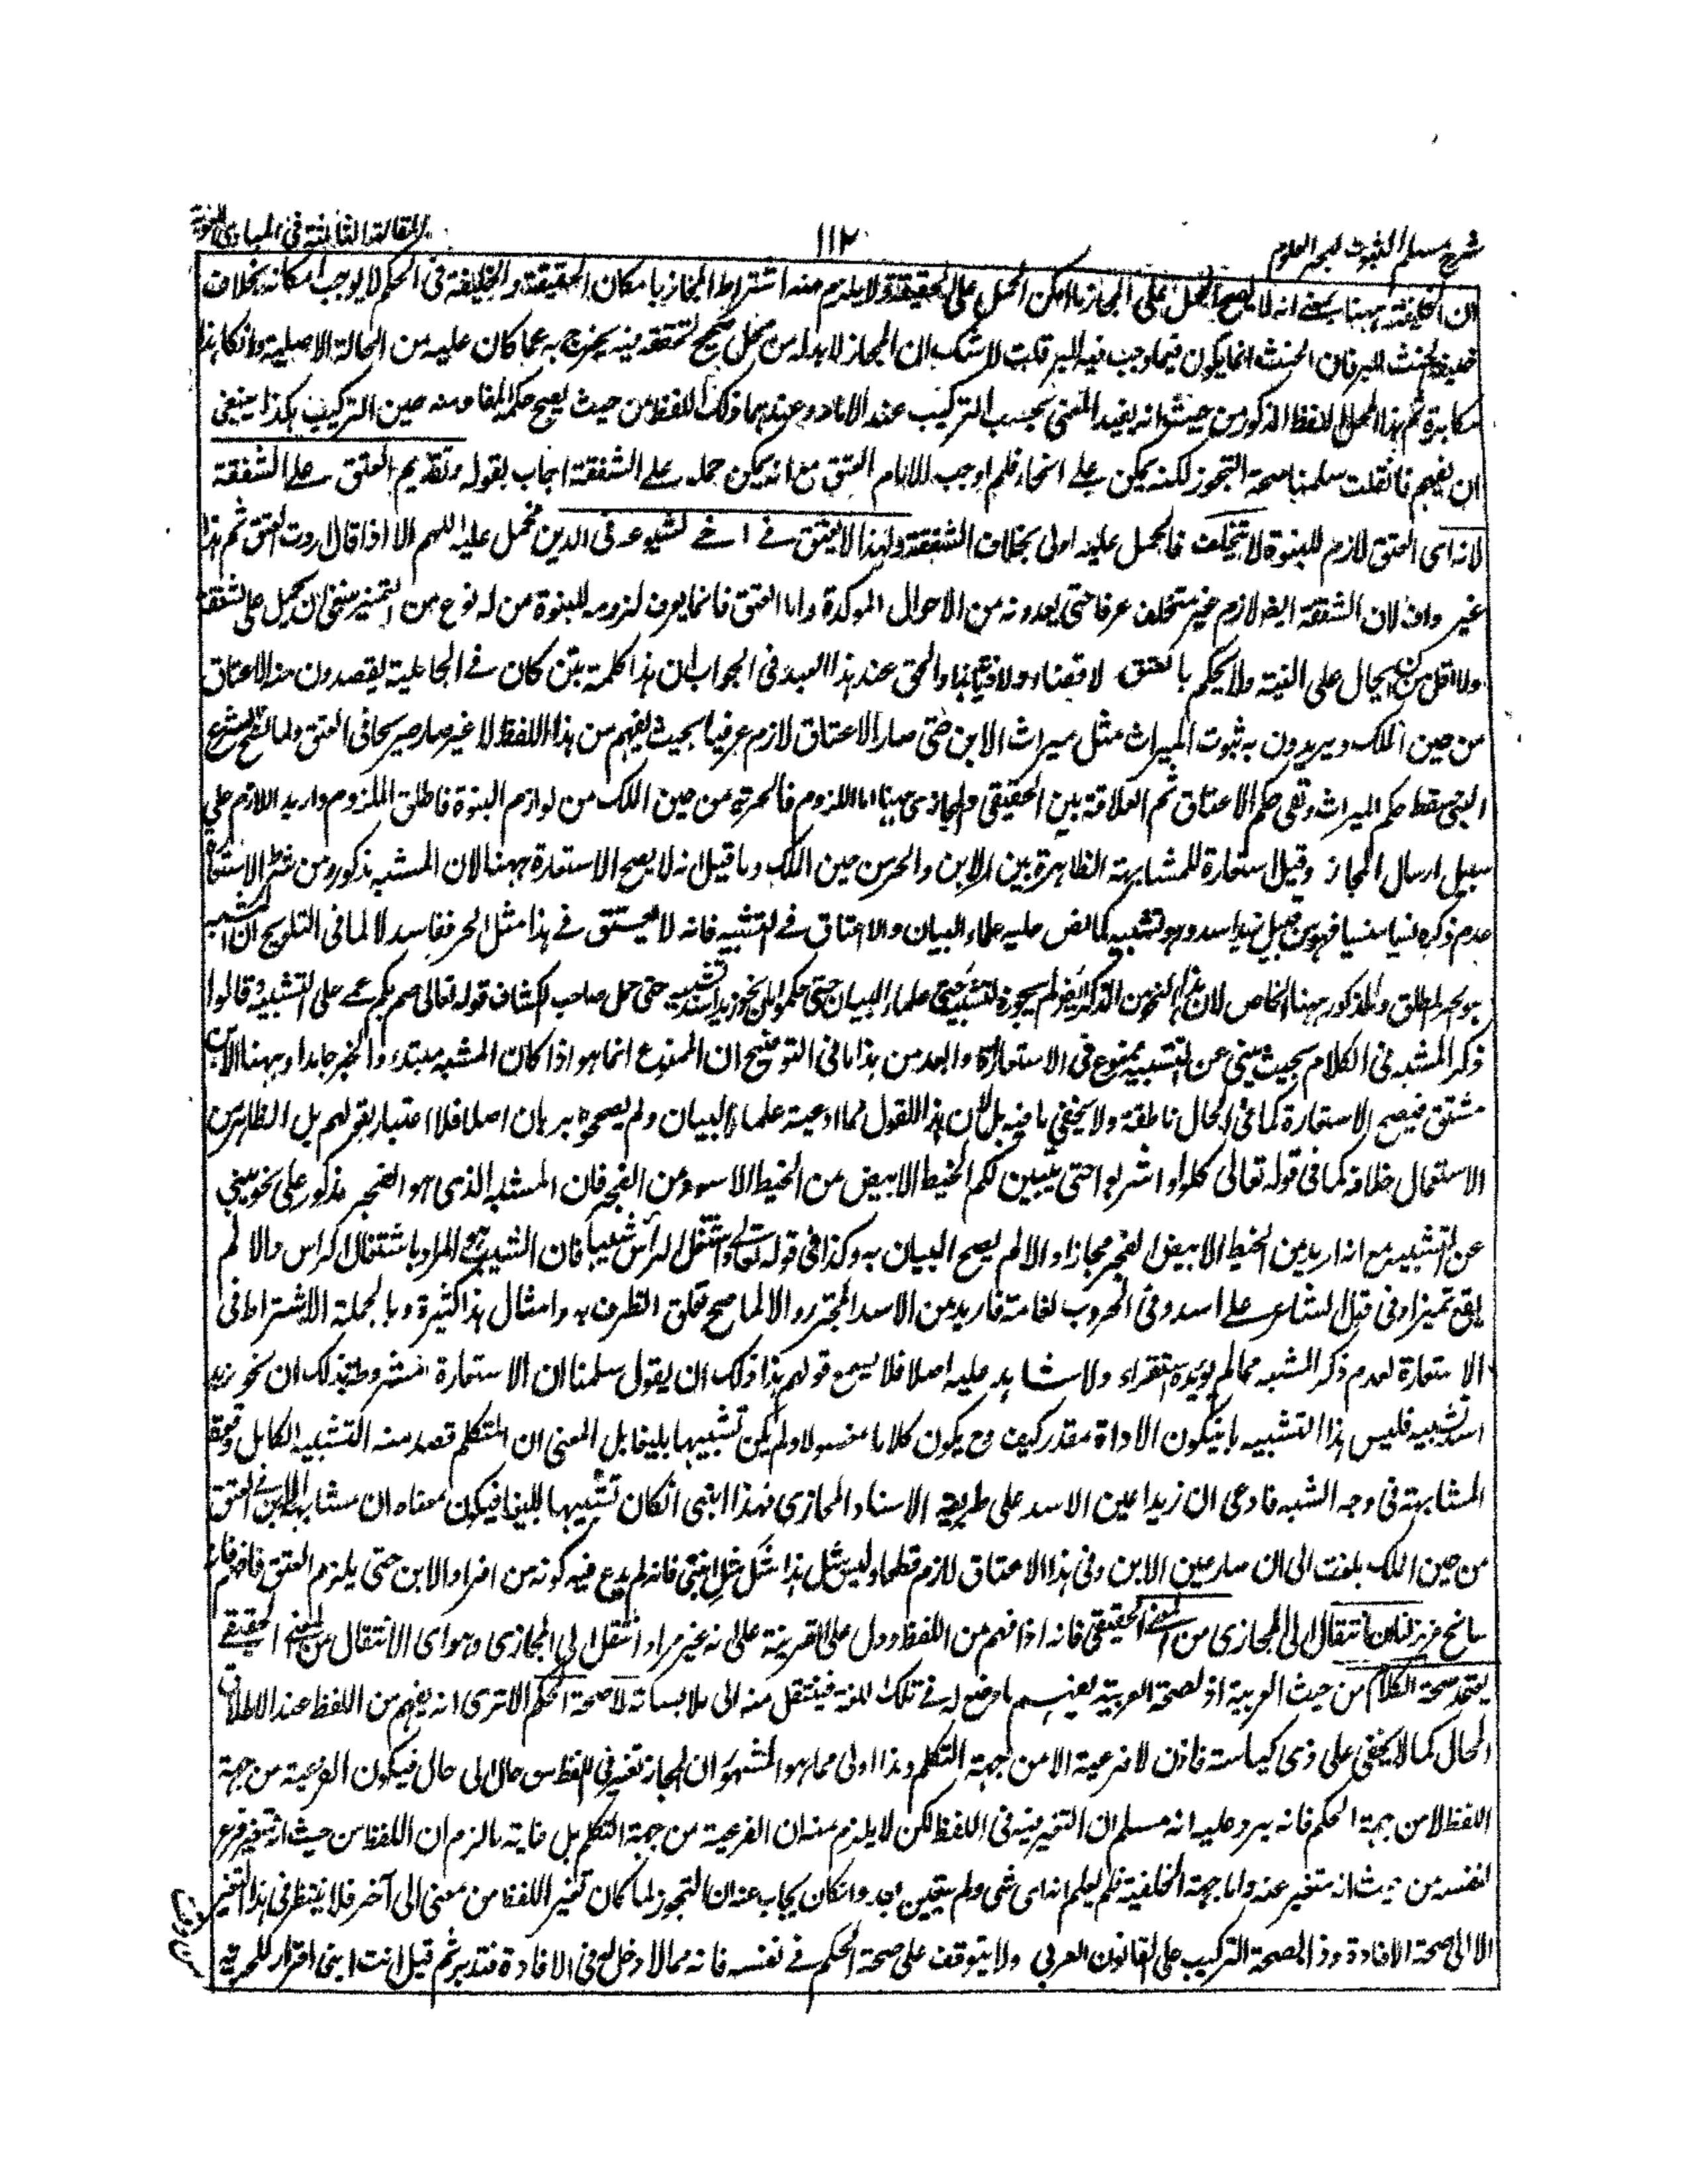 شرح مسلم الثبوت لبحر العلوم
١١٢
المقالة الثالثة في المبادي اللغوية
ان الخليفة ههنا بمعنى انه لا يصح الحمل على المجاز ما امكن الحمل على الحقيقة ولا يلزم منه اشتراط المجاز بامكان الحقيقة والخليفة في الحكم لا يوجب امكانه بخلاف
الحنث للبر فان الحنث انما يكون فيما وجب فيه البر قلت لا شك ان المجاز لا بد له من محل صحيح لتحققه فيه يخرج به عما كان عليه من الحالة الاصلية وانكار هذا
مكابرة ثم هذا المحل اللفظ المذكور من حيث انه يفيد المعنى بحسب التركيب عند الامام وعندهما ذلك اللفظ من حيث يصح حكمه المفاد منه حين التركيب هكذا ينبغي
ان يفهم فان قلت سلمنا صحة التجوز لكنه يمكن على انحاء فلم اوجب الامام العتق مع انه يمكن حمله على الشفقة اجاب بقوله وتقديم العتق على الشفقة
لانه اى العتق لازم للبنوة لا يتخلف فالحمل عليه اولى بخلاف الشفقة ولهذا لا يعتق في اخي لشيوعه في الدين فحمل عليه اللهم الا اذا قال اردت العتق ثم هذا
غير واف لان الشفقة ايضا لازم غير متخلف عرفا حتى يعدونه من الاحوال الموكدة واما العتق فانما يعرف لزومه للبنوة من له نوع من التميز فينبغي ان يحمل على الشفقة
ولا اقل من ان يحال على النية ولا يحكم بالعتق لا قضاء ولا ديانة والحق عند هذا العبد في الجواب ان هذا كلمة تبن كان في الجاهلية يقصدون منه الاعتاق
من حين الملك ويريدون به ثبوت الميراث مثل ميراث الابن حتى صار الاعتاق لازم عرفيا بحيث يفهم من هذا اللفظ لا غير صار صريحا في العتق ولما نسخ الشرع
التبني سقط حكم الميراث وبقي حكم الاعتاق ثم العلاقة بين الحقيقي والمجازى ههنا اما اللزوم فالحرية من حين الملك من لوازم البنوة فاطلق الملزوم واريد اللازم على
سبيل ارسال المجاز وقيل استعارة للمشابهة الظاهرة بين الابن والحر من حين الملك وما قيل انه لا يصح الاستعارة ههنا لان المشبه مذكور ومن شرط الاستعارة
عدم ذكره نسيا منسيا فهو من قبيل زيد اسد وهو تشبيه كما نص عليه علماء البيان والاعتاق في التشبيه فانه لا يعتق في هذا مثل الحر ففاسد لا لما في التلويح ان المشبه
هو الحر المطلق والمذكور ههنا الخاص لان هذا النحو من الذكر ايضا لم يجوزه حتى علماء البيان حتى حكموا بان نحو زيد اسد تشبيه حتى حمل صاحب الكشاف قوله تعالى صم بكم عمي على التشبيه وقالوا
ذكر المشبه في الكلام بحيث ينبي عن التشبيه ممنوع في الاستعارة وابعد من هذا ما في التوضيح ان الممنوع انما هو اذا كان المشبه مبتدء والخبر جامدا وههنا الابن
مشتق فيصح الاستعارة كما في الحال ناطقة ولا يخفي ما فيه بل لان هذا القول مما ادعته علماء البيان ولم يصححوه ببرهان اصلا فلا اعتبار بقولهم بل الظاهر من
الاستعمال خلافه كما في قوله تعالى كلوا واشربوا حتى يتبين لكم الخيط الابيض من الخيط الاسود من الفجر فان المشبه الذى هو الفجر مذكور على نحو ينبي
عن التشبيه مع انه اريد من الخيط الابيض الفجر مجازا والا لم يصح البيان به وكذا في قوله تعالى واشتعل الراس شيبا فان الشيب هو المراد باشتعال الراس والا لم
يقع تميزا وفي قول الشاعر على اسد وفي الحروب نعامة فاريد من الاسد المجترء والا لما صح تعلق الظرف به وامثال هذا كثيرة وبالجملة الاشتراط في
الاستعارة لعدم ذكر المشبه مما لم يؤيده استقراء ولا شاهد عليه اصلا فلا يسمع قولهم هذا ولك ان يقول سلمنا ان الاستعارة مشروطة بذلك ان نحو زيد
اسد تشبيه فليس هذا التشبيه بان يكون الاداة مقدر كيف وح يكون كلاما مغسولا ولم يكن تشبيها بليغا بل المعنى ان المتكلم قصد منه التشبيه الكامل
المشابهة في وجه الشبه فادعى ان زيدا عين الاسد على طريقة الاسناد المجازى فهذا ابني انكان تشبيها بليغا فيكون معناه ان مشابهته الابن في العتق
من حين الملك بلغت الى ان صار عين الابن وفي هذا الاعتاق لازم قطعا وليس مثل هذا مثل ابني فانه لم يدع فيه كونه من افراد الابن حتى يلزم العتق فافهم فانه
سانح عزيز لنا ان الانتقال الى المجازى من المعنى الحقيقي فانه اذا فهم من اللفظ ودل على القرينة على انه غير مراد انتقل الى المجازى وهو اى الانتقال من المعنى الحقيقي
يعتمد صحة الكلام من حيث العربية اذ لصحة العربية يفهم ما وضع له في تلك اللغة فينتقل منه الى ملابساته لا صحة الحكم الا ترى انه يفهم من اللفظ عند الاطلاق
المحال كما لا يخفى على ذى كياسة فاذن لا فرعية الا من جهة التكلم وهذا اولى مما هو المشهور ان المجاز تغير في اللفظ من حال الى حال فيكون الفرعية من جهة
اللفظ لا من جهة الحكم فانه يرد عليه انه مسلم ان التغير فيه في اللفظ لكن لا يلزم منه ان الفرعية من جهة التكلم بل غاية ما لزم ان اللفظ من حيث انه تغير فرع
لنفسه من حيث انه متغير عنه واما جهة الخلفية فلم يعلم انه اى شى ولم يتعين بعد وانكان يجاب عنه ان التجوز لما كان تغير اللفظ من معنى الى آخر فلا ينتظر في هذا التغير
الا الى صحة الافادة وذا لصحة التركيب على القانون العربى ولا يتوقف على صحة الحكم في نفسه فانه مما لا دخل له في الافادة فتدبر ثم قيل انت ابني اقرار للحرية